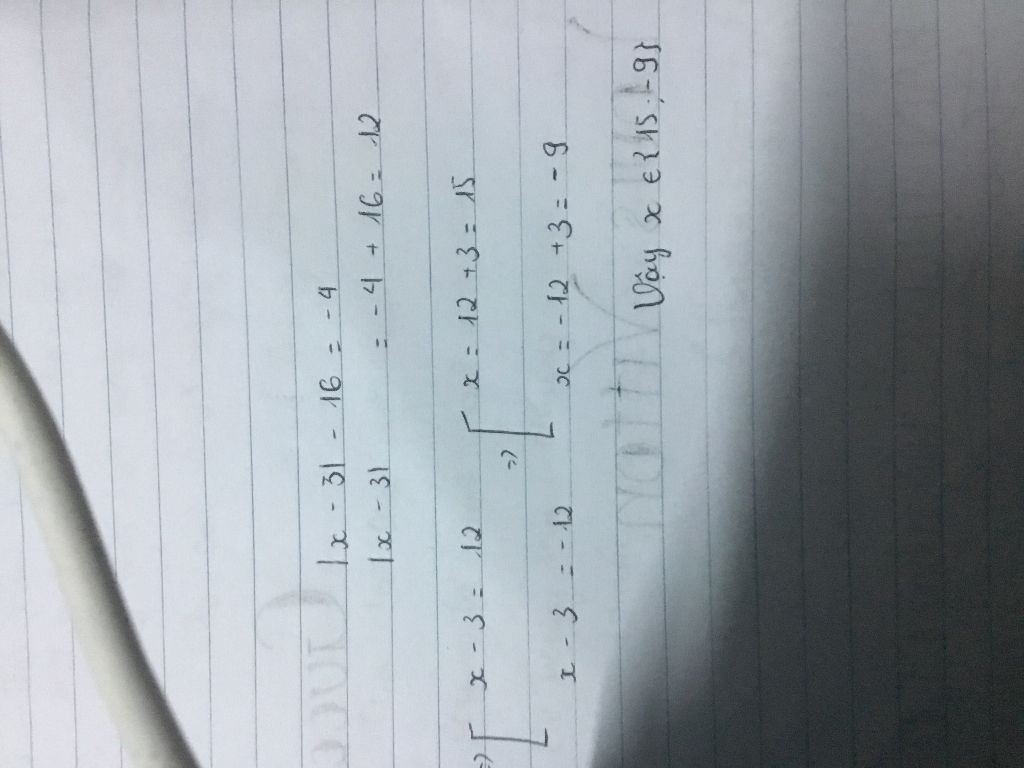 |x - 3| - 16 = -4
|x - 3| = -4 + 16 = 12
=> [ x - 3 = 12 => [ x = 12 + 3 = 15
x - 3 = -12 x = -12 + 3 = -9
Vậy x ∈ {15; -9}